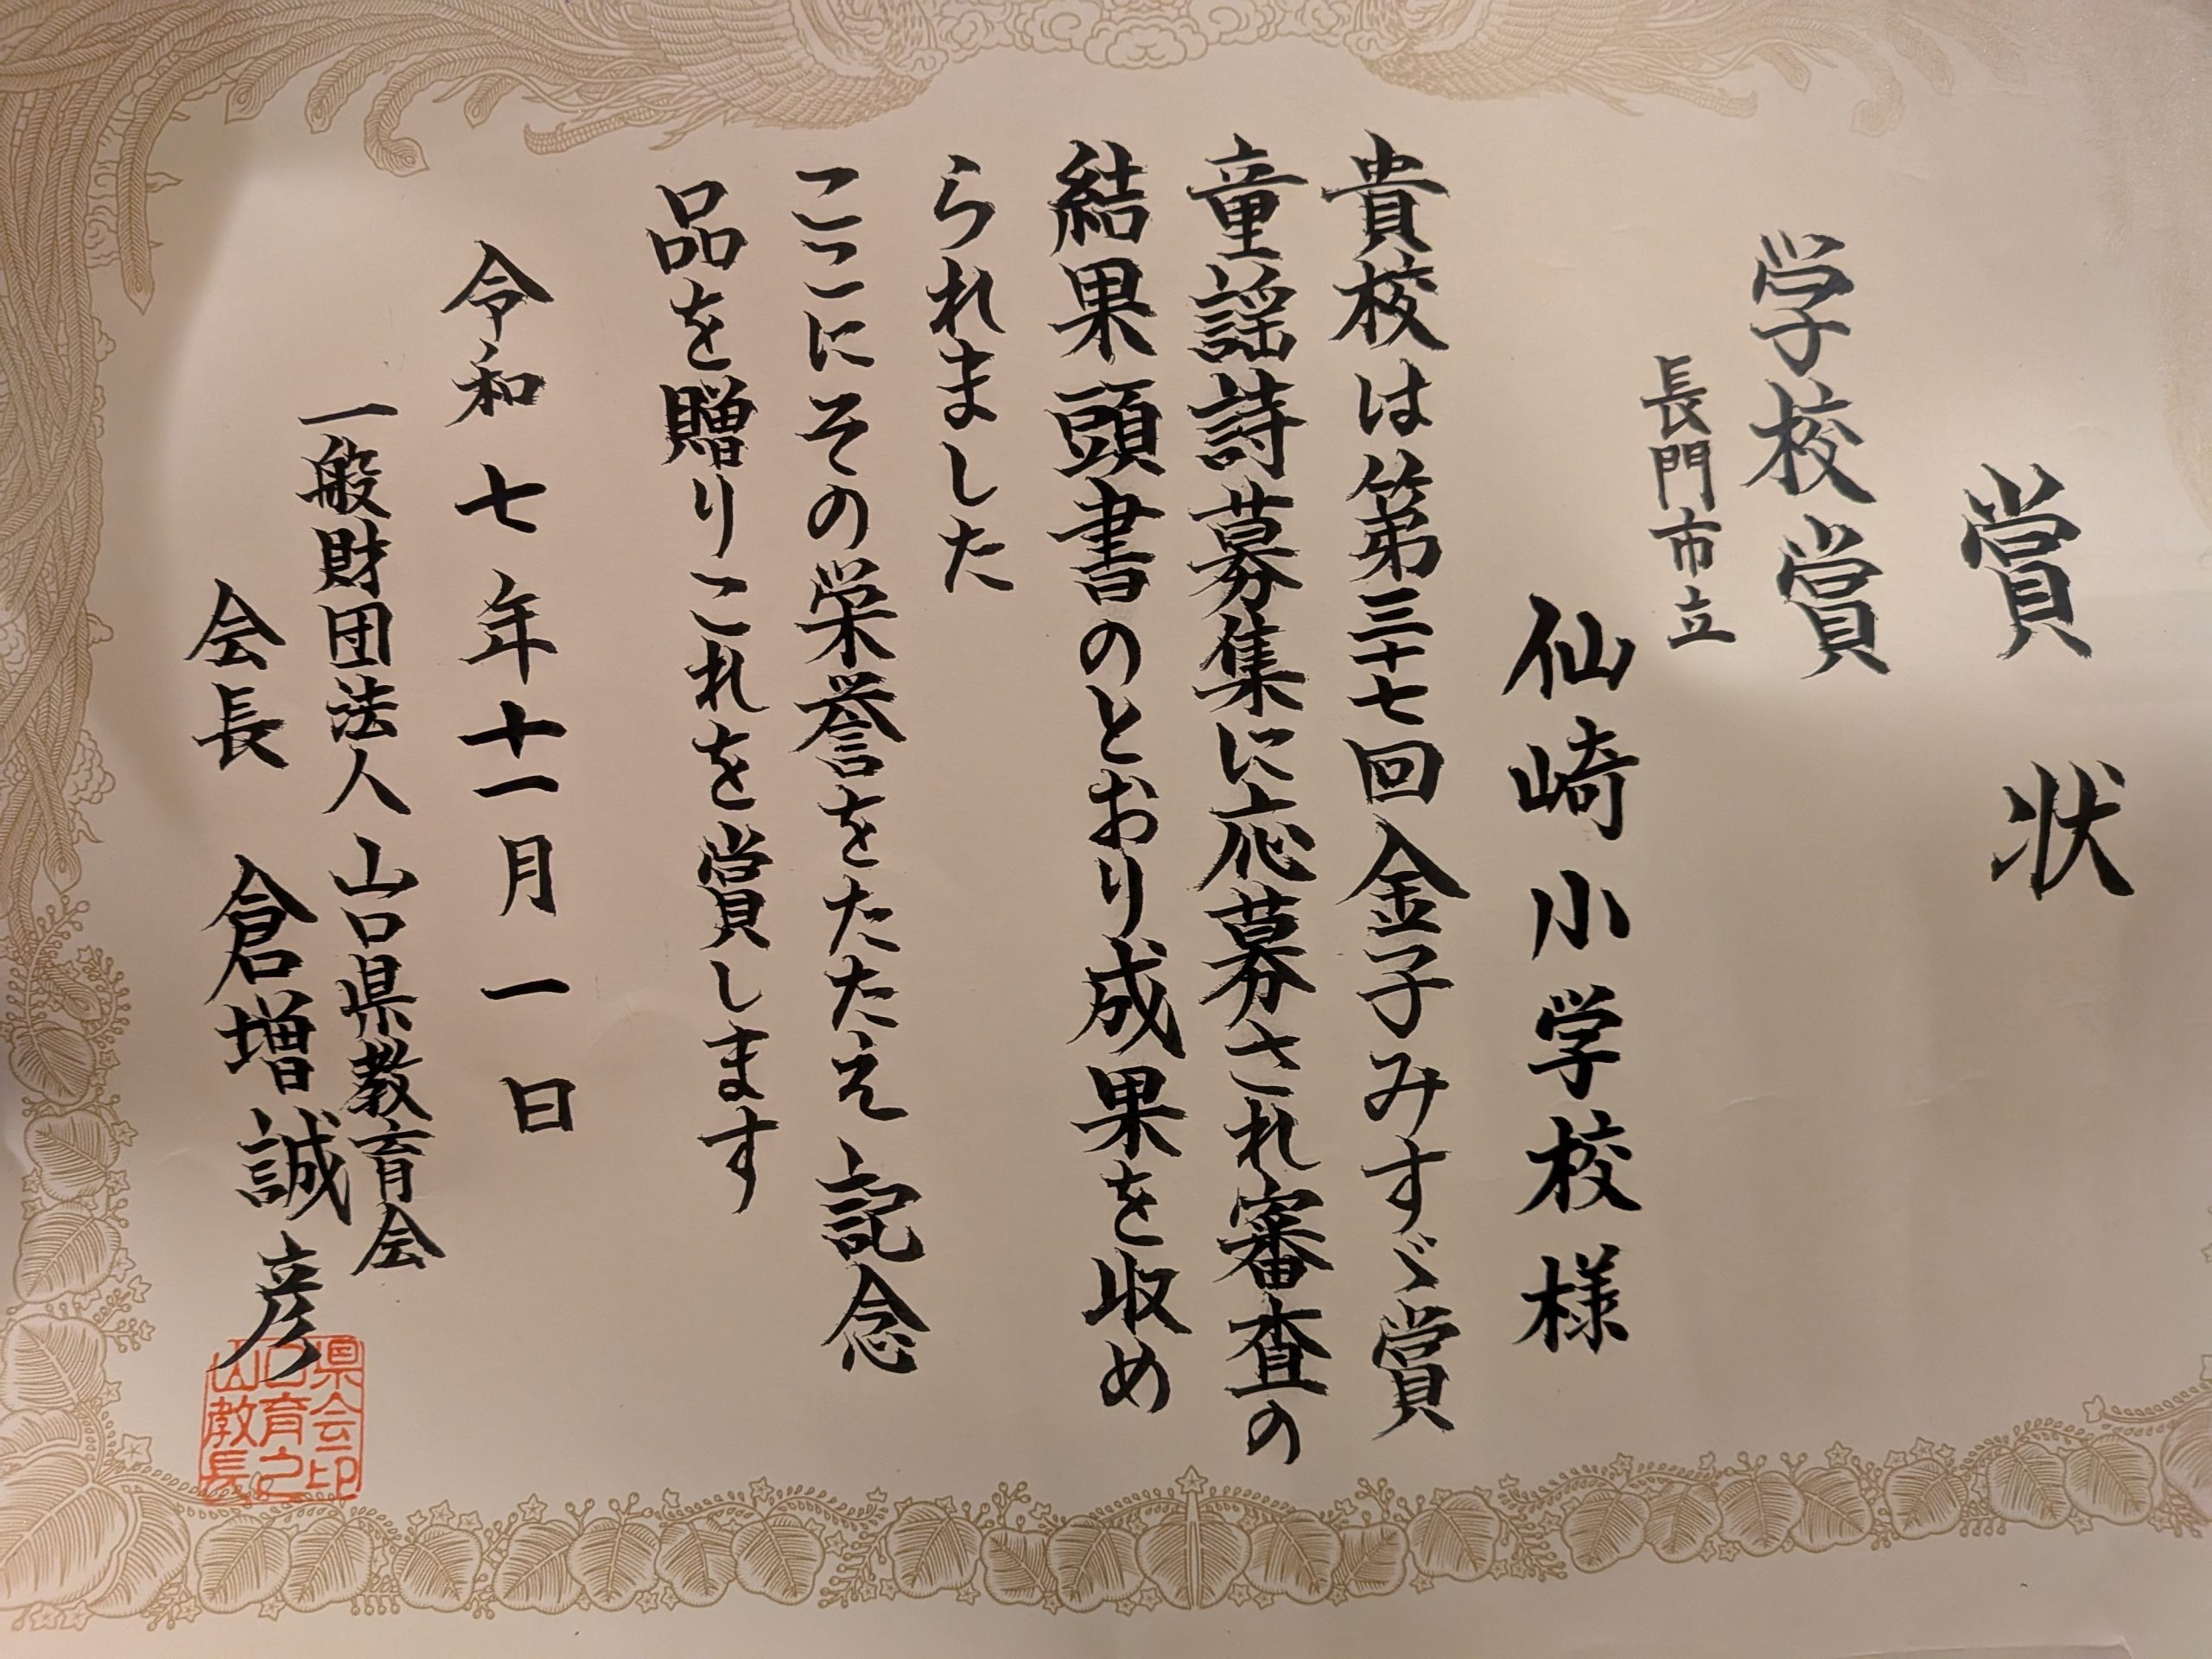 賞状
学校賞
長門市立
仙崎小学校様
貴校は第三十七回金子みすゞ賞
童謡詩募集に応募され審査の
結果頭書のとおり成果を収め
られました
ここにその栄誉をたたえ記念
品を贈りこれを賞します
令和七年十一月一日
一般財団法人山口県教育会
会長 倉増誠彦
県会印
口育之
山教長